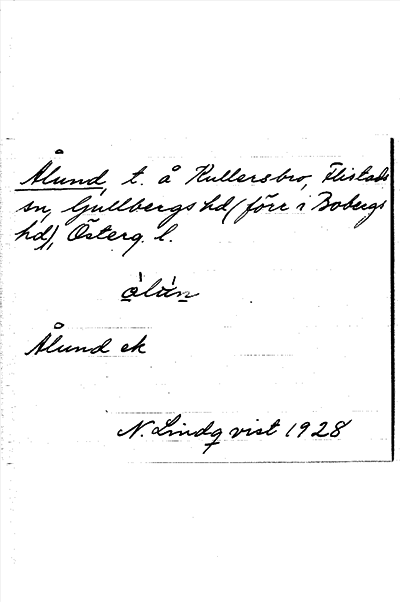 Ålund, t. å Kullersbro, Flistads
sn, Gullbergs hd (förr i Bobergs
hd), Österg. l.
Ålund ek
N. Lindqvist 1928